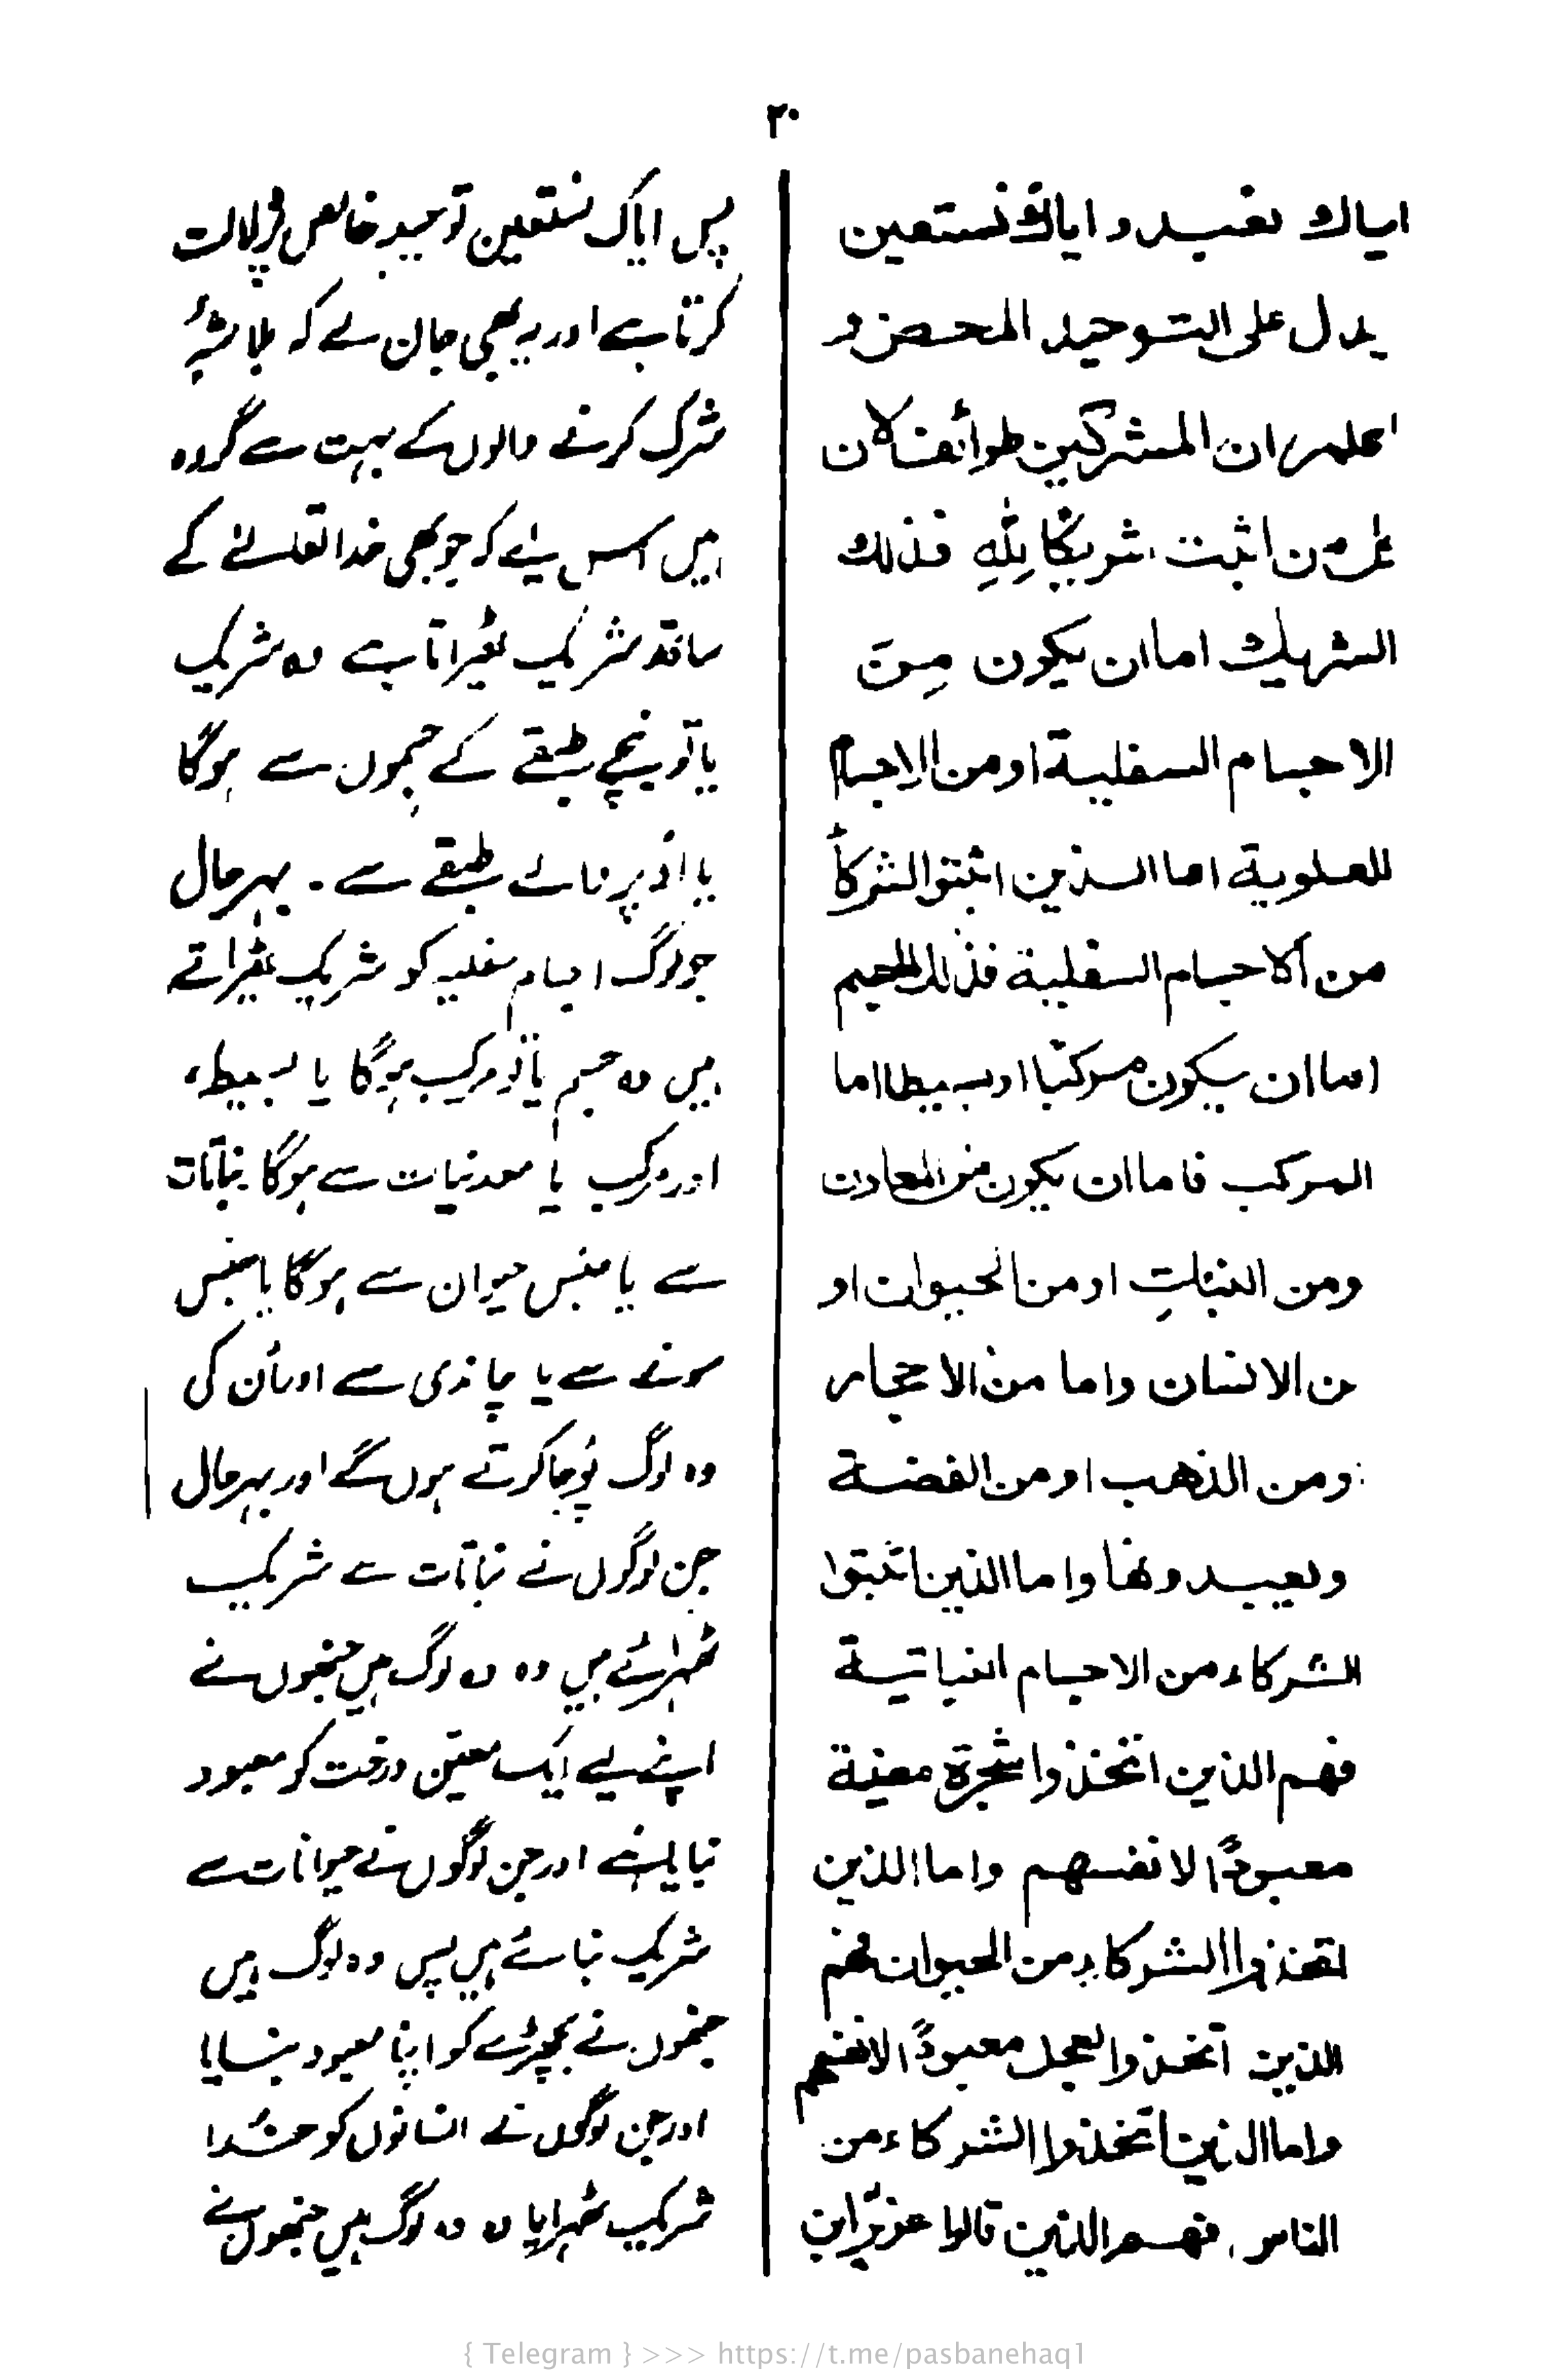 ۲۰
ایاك نعبد و ایاك نستعین
یدل علی التوحید المحض و
اعلم ان المشرکین طوائف لان
کل من اثبت شریکا للهِ فذلك
الشریك اما ان یکون مِنَ
الاجسام السفلیة او من الاجسام
العلویة اما الذین اثبتوا الشرکاً
من الاجسام السفلیة فذلك الجسم
اما ان یکون مرکبًا او بسیطا اما
المرکب فاما ان یکون من المعادن
ومن النباتِ او من الحیوان او
من الانسان واما من الاحجار
ومن الذهب او من الفضة
ویعبدونها واما الذین اثبتوا
الشرکاء من الاجسام النباتیة
فهم الذین اتخذوا شجرة معینة
معبودًا لانفسهم واما الذین
اتخذوا الشرکاء من الحیوان فهم
الذین اتخذوا العجل معبودًا لانفسهم
واما الذین اتخذوا الشرکاء من
الناس، فهم الذین قالوا عزیرٌ ابن
پس ایاک نستعین توحید خالص پر دلالت
کرتا ہے اور یہ بھی جان لے کہ بلا شبہُ
شرک کرنے والوں کے بہت سے گروہ
ہیں اس لیے کہ جو بھی خدا تعالےٰ کے
ساتھ شریک ٹھیراتا ہے وہ شریک
یا تو نیچے طبقے کے جسموں سے ہوگا
یا اوپر والے طبقے سے۔ بہرحال
جو لوگ اجسام سفلیہ کو شریک ٹھیراتے
ہیں وہ جسم یا تو مرکب ہوگا یا بسیط،
اور مرکب یا معدنیات سے ہوگا نباتات
سے یا جنس حیوان سے ہوگا یا جنس
سونے سے یا چاندی سے اور اُن کی
وہ لوگ پُوجا کرتے ہوں گے اور بہرحال
جن لوگوں نے نباتات سے شریک
ٹھہرائے ہیں وہ وہ لوگ ہیں جنھوں نے
اپنے لیے ایک معیّن درخت کو معبود
بنا لیا ہے اور جن لوگوں نے حیوانات سے
شریک بنائے ہیں پس وہ لوگ ہیں
جنھوں نے بچھڑے کو اپنا معبود بنایا
اور جن لوگوں نے انسانوں کو خُدا
شریک ٹھہرایا وہ وہ لوگ ہیں جنھوں نے
{ Telegram } >>> https://t.me/pasbanehaq1